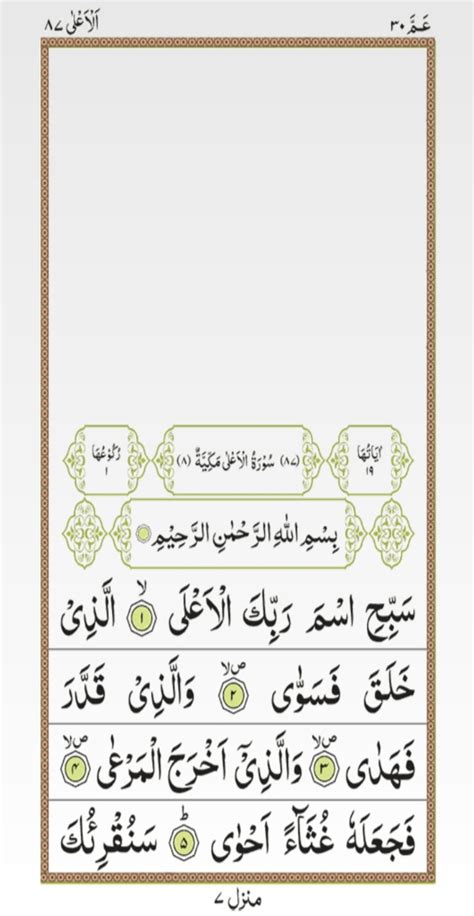 عَمَّ ٣٠
اَلْاَعْلٰى ٨٧
اٰيَاتُهَا ١٩
(٨٧) سُوْرَةُ الْاَعْلٰى مَكِّيَّةٌ (٨)
رُكُوْعُهَا ١
بِسْمِ اللّٰهِ الرَّحْمٰنِ الرَّحِيْمِ
سَبِّحِ اسْمَ رَبِّكَ الْاَعْلَى ۙ﴿١﴾ الَّذِیْ
خَلَقَ فَسَوّٰى ۪ۙ﴿٢﴾ وَالَّذِیْ قَدَّرَ
فَهَدٰى ۪ۙ﴿٣﴾ وَالَّذِیْۤ اَخْرَجَ الْمَرْعٰى ۪ۙ﴿٤﴾
فَجَعَلَهٗ غُثَآءً اَحْوٰى ؕ﴿٥﴾ سَنُقْرِئُكَ
منزل ٧